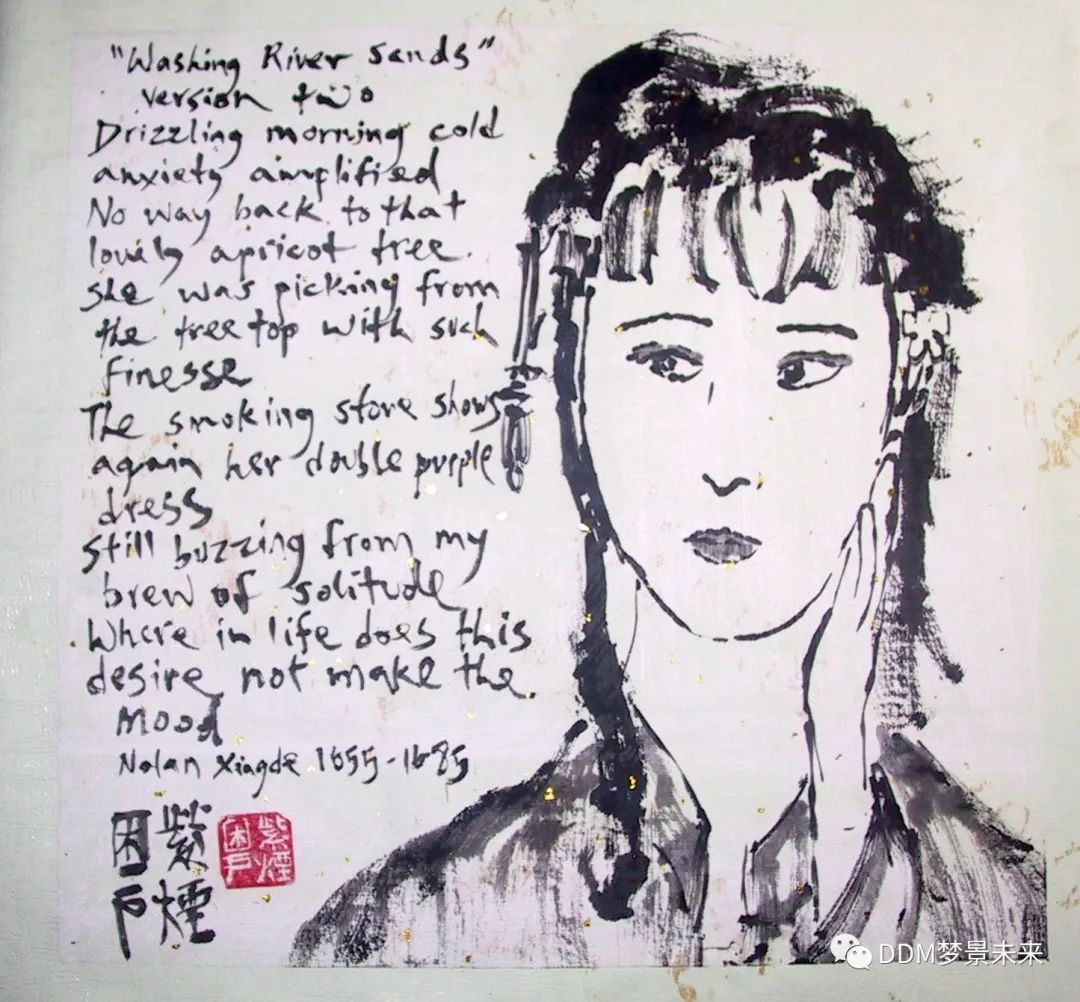 "Washing River Sands"
version two
Drizzling morning cold
anxiety amplified
No way back to that
lovely apricot tree.
She was picking from
the tree top with such
finesse
The smoking stove shows
again her double purple
dress
Still buzzing from my
brew of solitude
Where in life does this
desire not make the
mood
Nolan Xiagde 1655-1685
紫煙
困戶
紫煙
困戶
DDM梦景未来